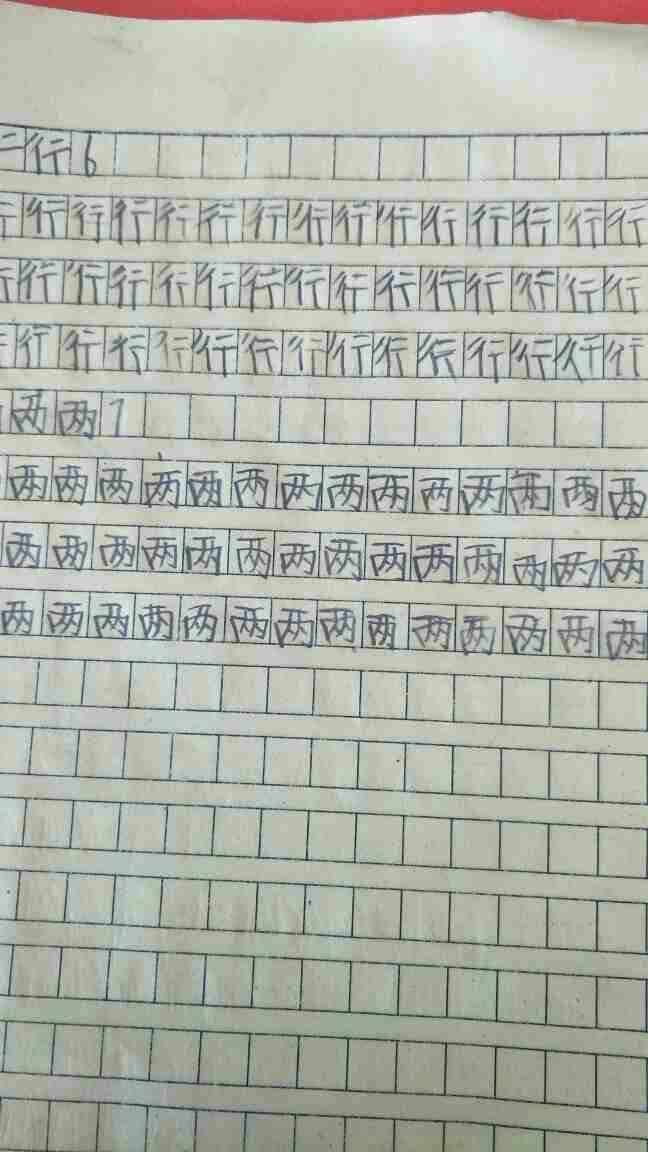 二行6
行行行行行行行行行行行行行行行
行行行行行行行行行行行行行行行
行行行行行行行行行行行行行行行
两两7
两两两两两两两两两两两两两两
两两两两两两两两两两两两两两
两两两两两两两两两两两两两两